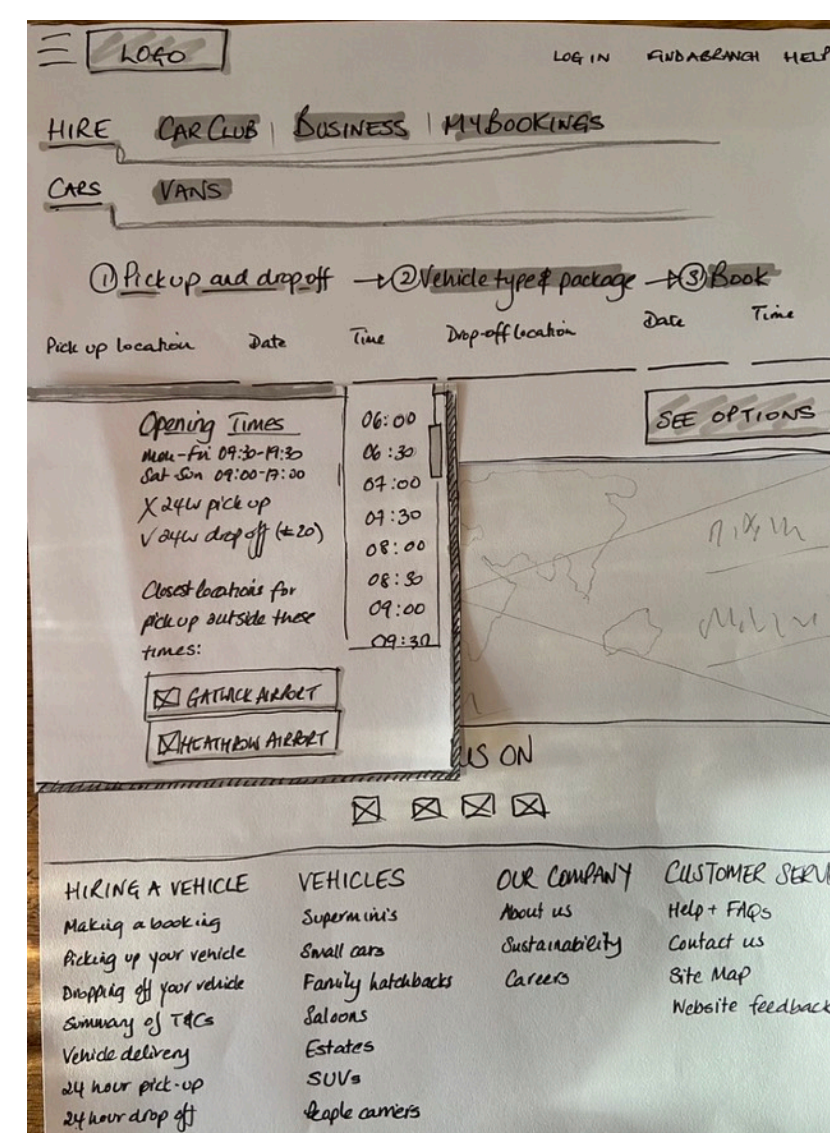 LOGO
LOG IN FIND A BRANCH HELP
HIRE CAR CLUB | BUSINESS | MY BOOKINGS
CARS VANS
① Pick up and drop off → ② Vehicle type & package → ③ Book
Pick up location Date Time Drop-off location Date Time
SEE OPTIONS
Opening Times
Mon-Fri 09:30-19:30
Sat Sun 09:00-17:00
X 24hr pick up
V 24hr drop off (£20)
Closest locations for
pick up outside these
times:
GATWICK AIRPORT
HEATHROW AIRPORT
06:00
06:30
07:00
07:30
08:00
08:30
09:00
09:30
US ON
HIRING A VEHICLE
Making a booking
Picking up your vehicle
Dropping off your vehicle
Summary of T&Cs
Vehicle delivery
24 hour pick-up
24 hour drop off
VEHICLES
Supermini's
Small cars
Family hatchbacks
Saloons
Estates
SUVs
People carriers
OUR COMPANY
About us
Sustainability
Careers
CUSTOMER SERV
Help + FAQs
Contact us
Site Map
Website feedback